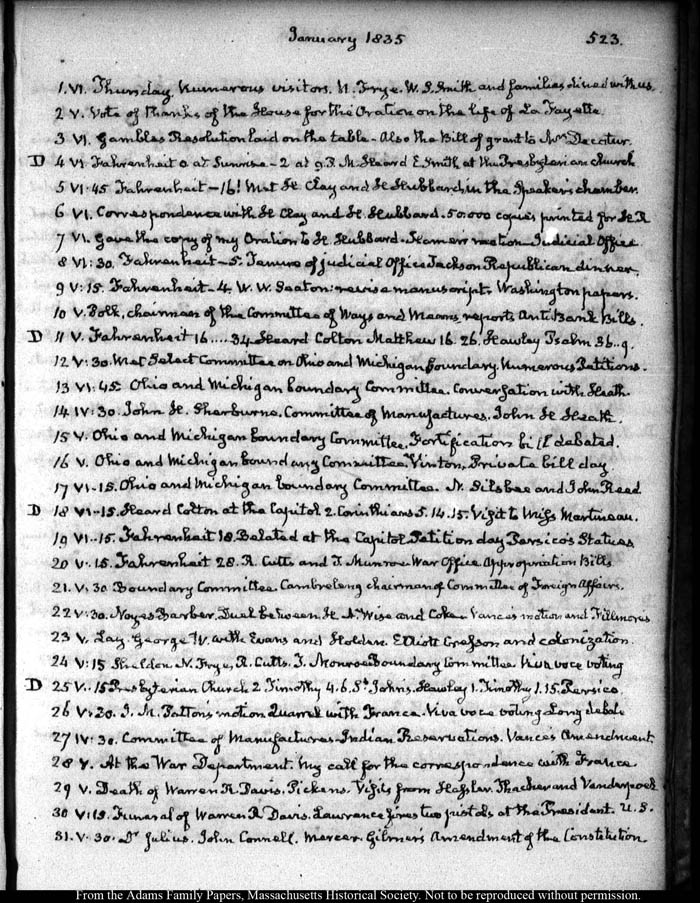 January 1835
523.
1. VI. Thursday. Numerous visitors. N. Frye. W. S. Smith and families dined with us.
2 V. Vote of thanks of the House for the Oration on the life of La Fayette.
3 VI. Gambles Resolution laid on the table - Also the Bill of grant to Mrs Decatur.
D 4 VI. Fahrenheit 0 at Sunrise - 2 at 9 P.M. Heard E Smith at the Presbyterian Church
5 VI. 45 Fahrenheit - 16! Met H Clay and H Hubbard, in the Speaker's chamber.
6 VI. Correspondence with H Clay and H. Hubbard. 50000 copies printed for H. R
7 VI. Gave the copy of my Oration to H. Hubbard. Hamer's motion - Judicial Office.
8 VI: 30. Fahrenheit - 5. Tenure of judicial Office Jackson Republican dinner.
9 V: 15. Fahrenheit - 4. W. W. Seaton: revise manuscript. Washington papers.
10 V. Polk, chairman of the Committee of Ways and Means, reports Anti Bank Bills.
D 11 V. Fahrenheit 16 .... 34. Heard Colton Matthew 16. 26. Hawley Psalm 36. 9.
12 V: 30. Met Select Committee on Ohio and Michigan boundary. Numerous Petitions.
13 VI: 45. Ohio and Michigan boundary Committee. Conversation with Heath.
14 IV: 30. John H. Sherburne. Committee of Manufactures. John H Heath.
15 V. Ohio and Michigan boundary Committee. Fortification bill debated.
16 V. Ohio and Michigan boundary Committee. Vinton. Private bill day
17 VI. 15. Ohio and Michigan boundary Committee. N. Silsbee and John Reed
D 18 VI. 15. Heard Colton at the Capitol 2. Corinthians 5. 14. 15. Visit to Miss Martineau.
19 VI. 15. Fahrenheit 18. Belated at the Capitol Petition day Persico's Statues
20 V. 15. Fahrenheit 28. R. Cutts and J. Munroe War Office Appropriation Bills
21. V: 30 Boundary Committee Cambreleng chairman of Committee of Foreign Affairs.
22 V: 30. Noyes Barber. Duel between H. A. Wise and Coke. Vance's motion and Fillmore's
23 V. Lay. George W. with Evans and Holden. Elliott Cresson and colonization.
24 V: 15 Sheldon. N. Frye, R. Cutts. J. Monroe Boundary Committee Viva voce voting
D 25 V. 15 Presbyterian Church 2. Timothy 4. 6. St Johns. Hawley 1. Timothy 1. 15. Persico.
26 V: 30. J. M. Patton's motion Quarrel with France. Viva voce voting Long debate
27 IV: 30. Committee of Manufactures. Indian Reservations. Vance's Amendment.
28 V. At the War Department. My call for the correspondence with France
29 V. Death of Warren R. Davis. Pickens. Visits from Hassler. Thacher and Vanderpoel
30 V: 15. Funeral of Warren R Davis. Lawrence fires two pistols at the President. U. S.
31. V. 30. Dr Julius. John Connell. Mercer. Gilmer's Amendment of the Constitution.
From the Adams Family Papers, Massachusetts Historical Society. Not to be reproduced without permission.